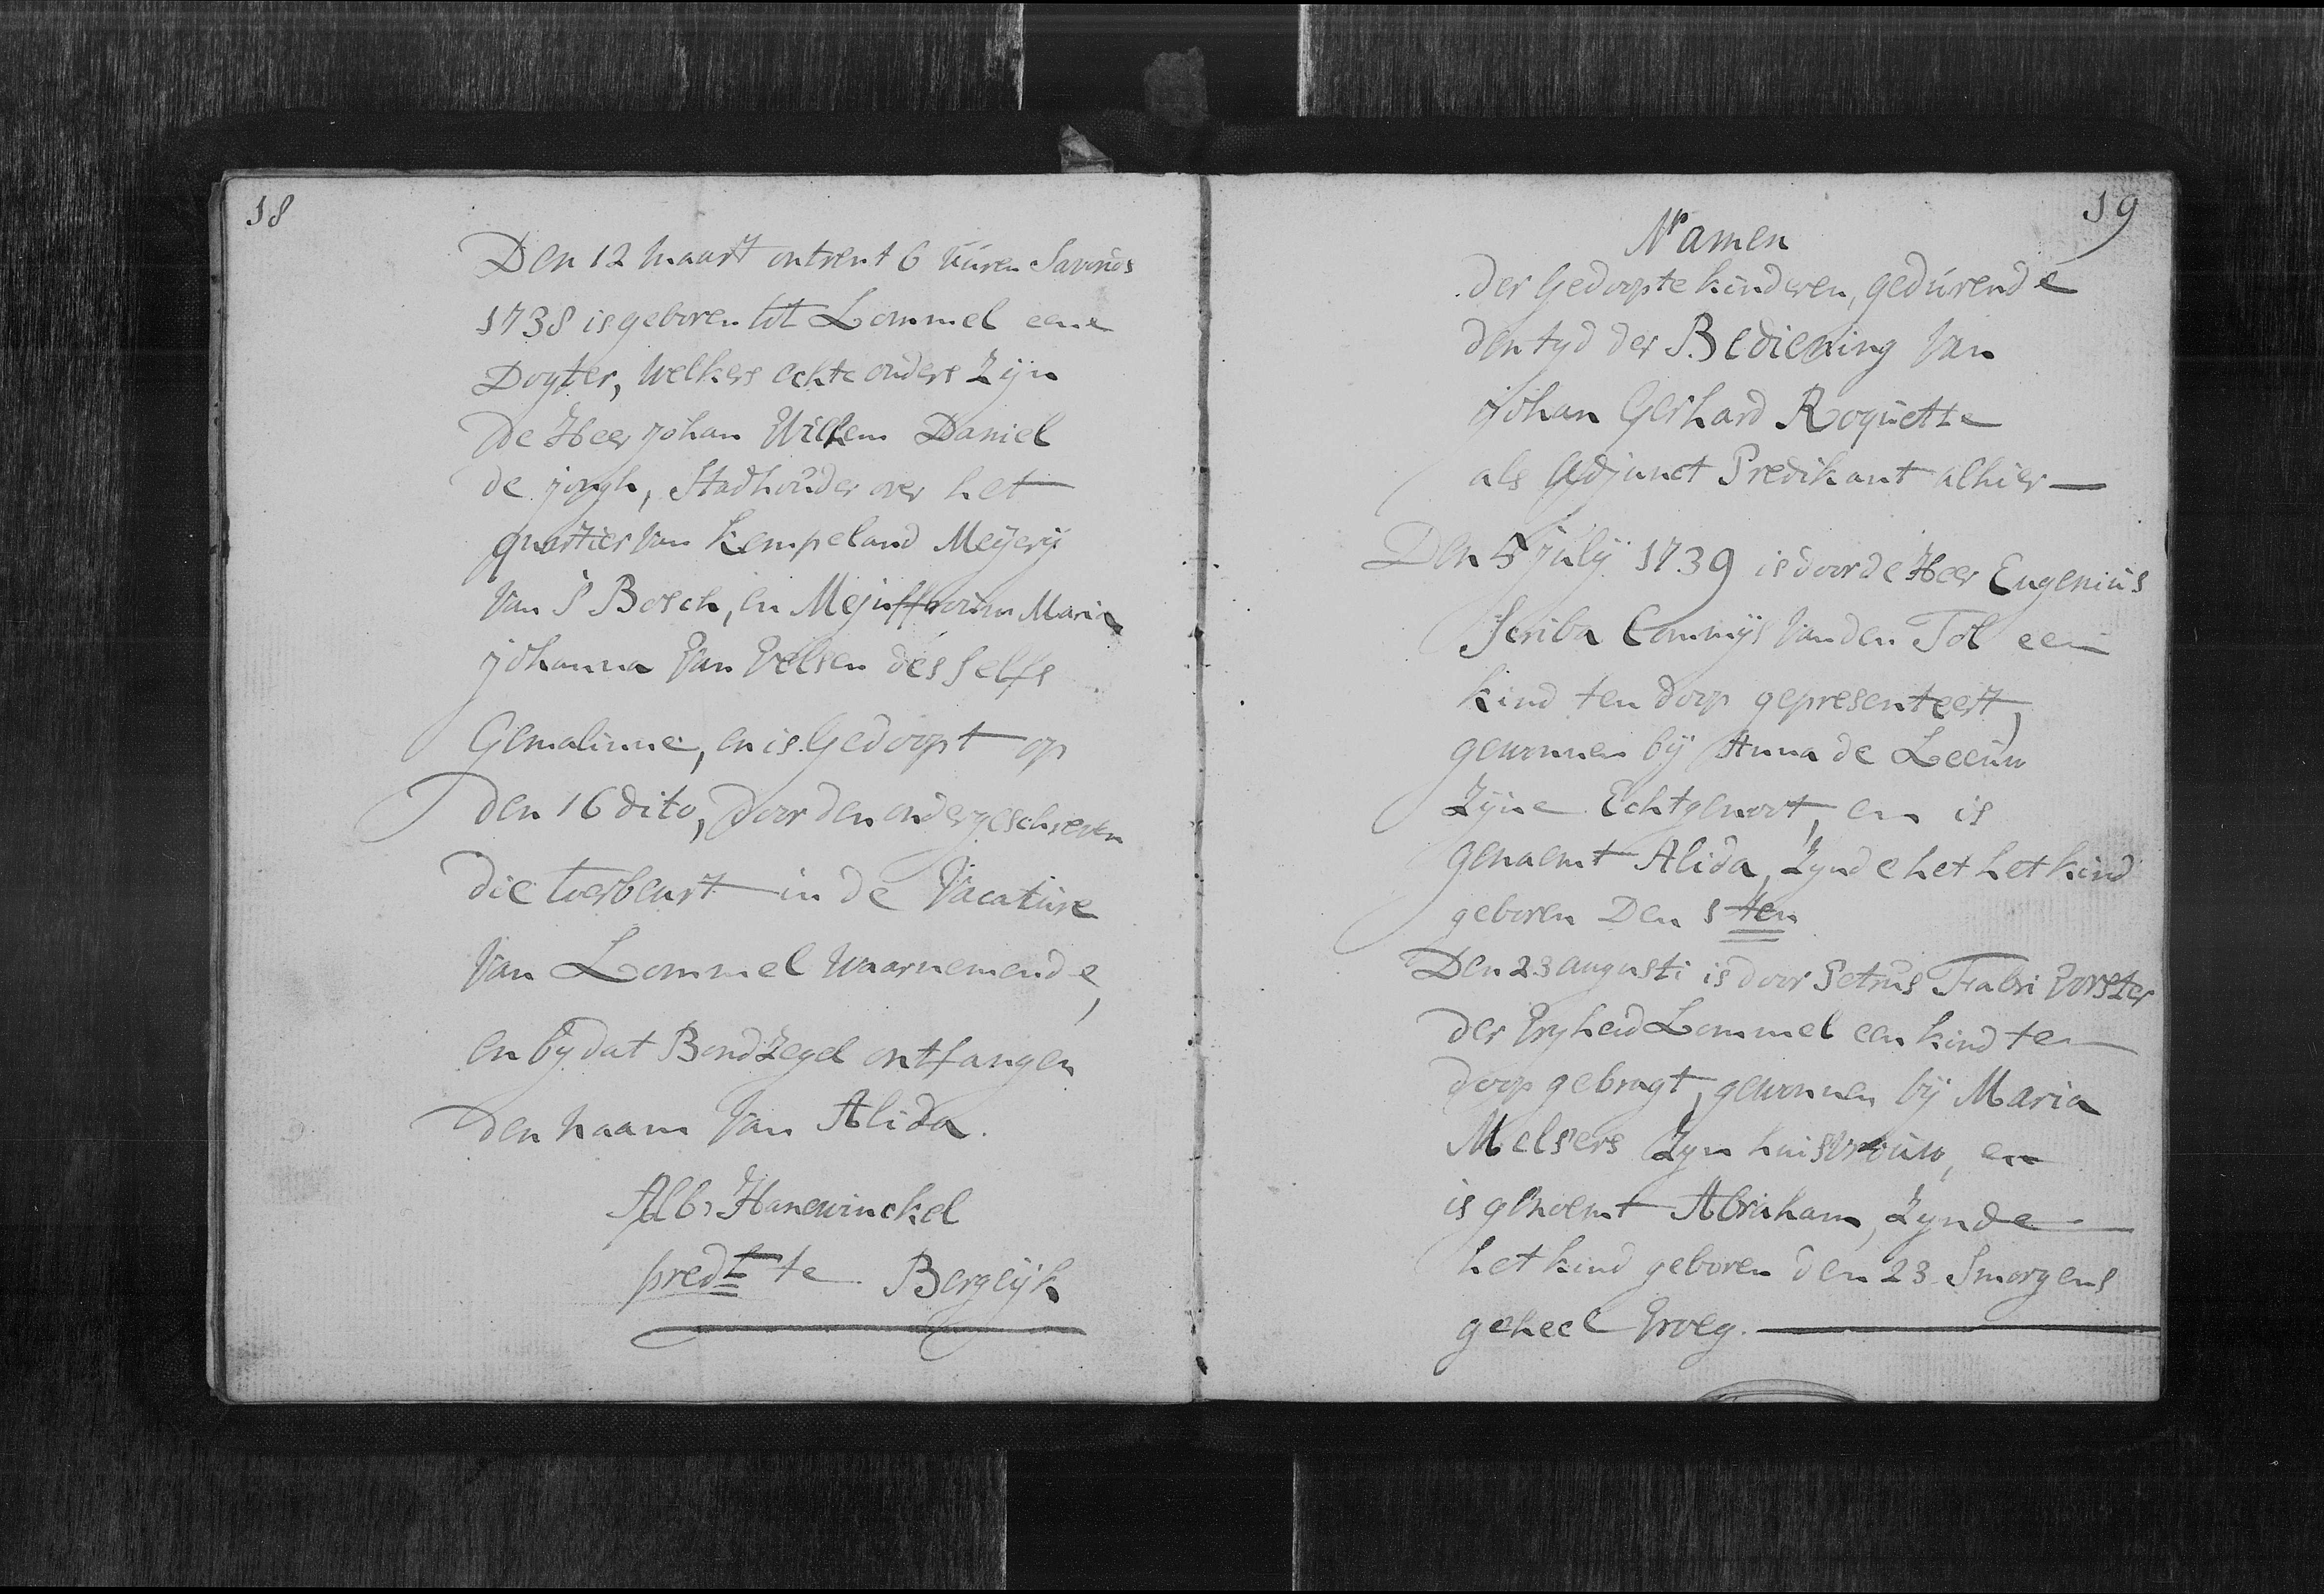 18
Den 12 maart ontrent 6 uüren Savonds
1738 is geboren tot Lommel eene
Dogter, welkers echte ouders Zijn
De Heer Johan Willem Daniel
de jongh, Stadhouder over het
quartier van Kempeland Meÿerÿ
van S Bosch, en Mejuffrouw Maria
johanna Van Velsen des selfs
Gemalinne, en is Gedoopt op
den 16 dito, door den ondergeschreven
die toerbeurt in de Vacature
Van Lommel waarnemende,
en by dat Bondzegel ontfangen
den naam Van Alida.
Alb: Hanewinckel
predt te Bergeijk
19
Namen
der Gedoopte kinderen, gedúrende
den tyd der Bediening Van
Johan Gerhard Roquette
als Adjunct Predikant alhier —
Den 5 july 1739 is door de Heer Eugenius
Scriba Commijs van den Tol een
kind ten doop gepresenteert,
gewonnen bÿ Anna de Leeuw
Zijne Echtgenoot, en is
genaemt Alida, Zynde het het kind
geboren Den 1 ten
Den 23 augusti is door Petrus Fabri Vorster
der Vryheid Lommel een kind ten
doop gebragt, gewonnen bÿ Maria
Melsers Zyn huisvrouw, en
is genoemt Abraham, Zynde
het kind geboren den 23 Smorgens
geheel Vroeg.